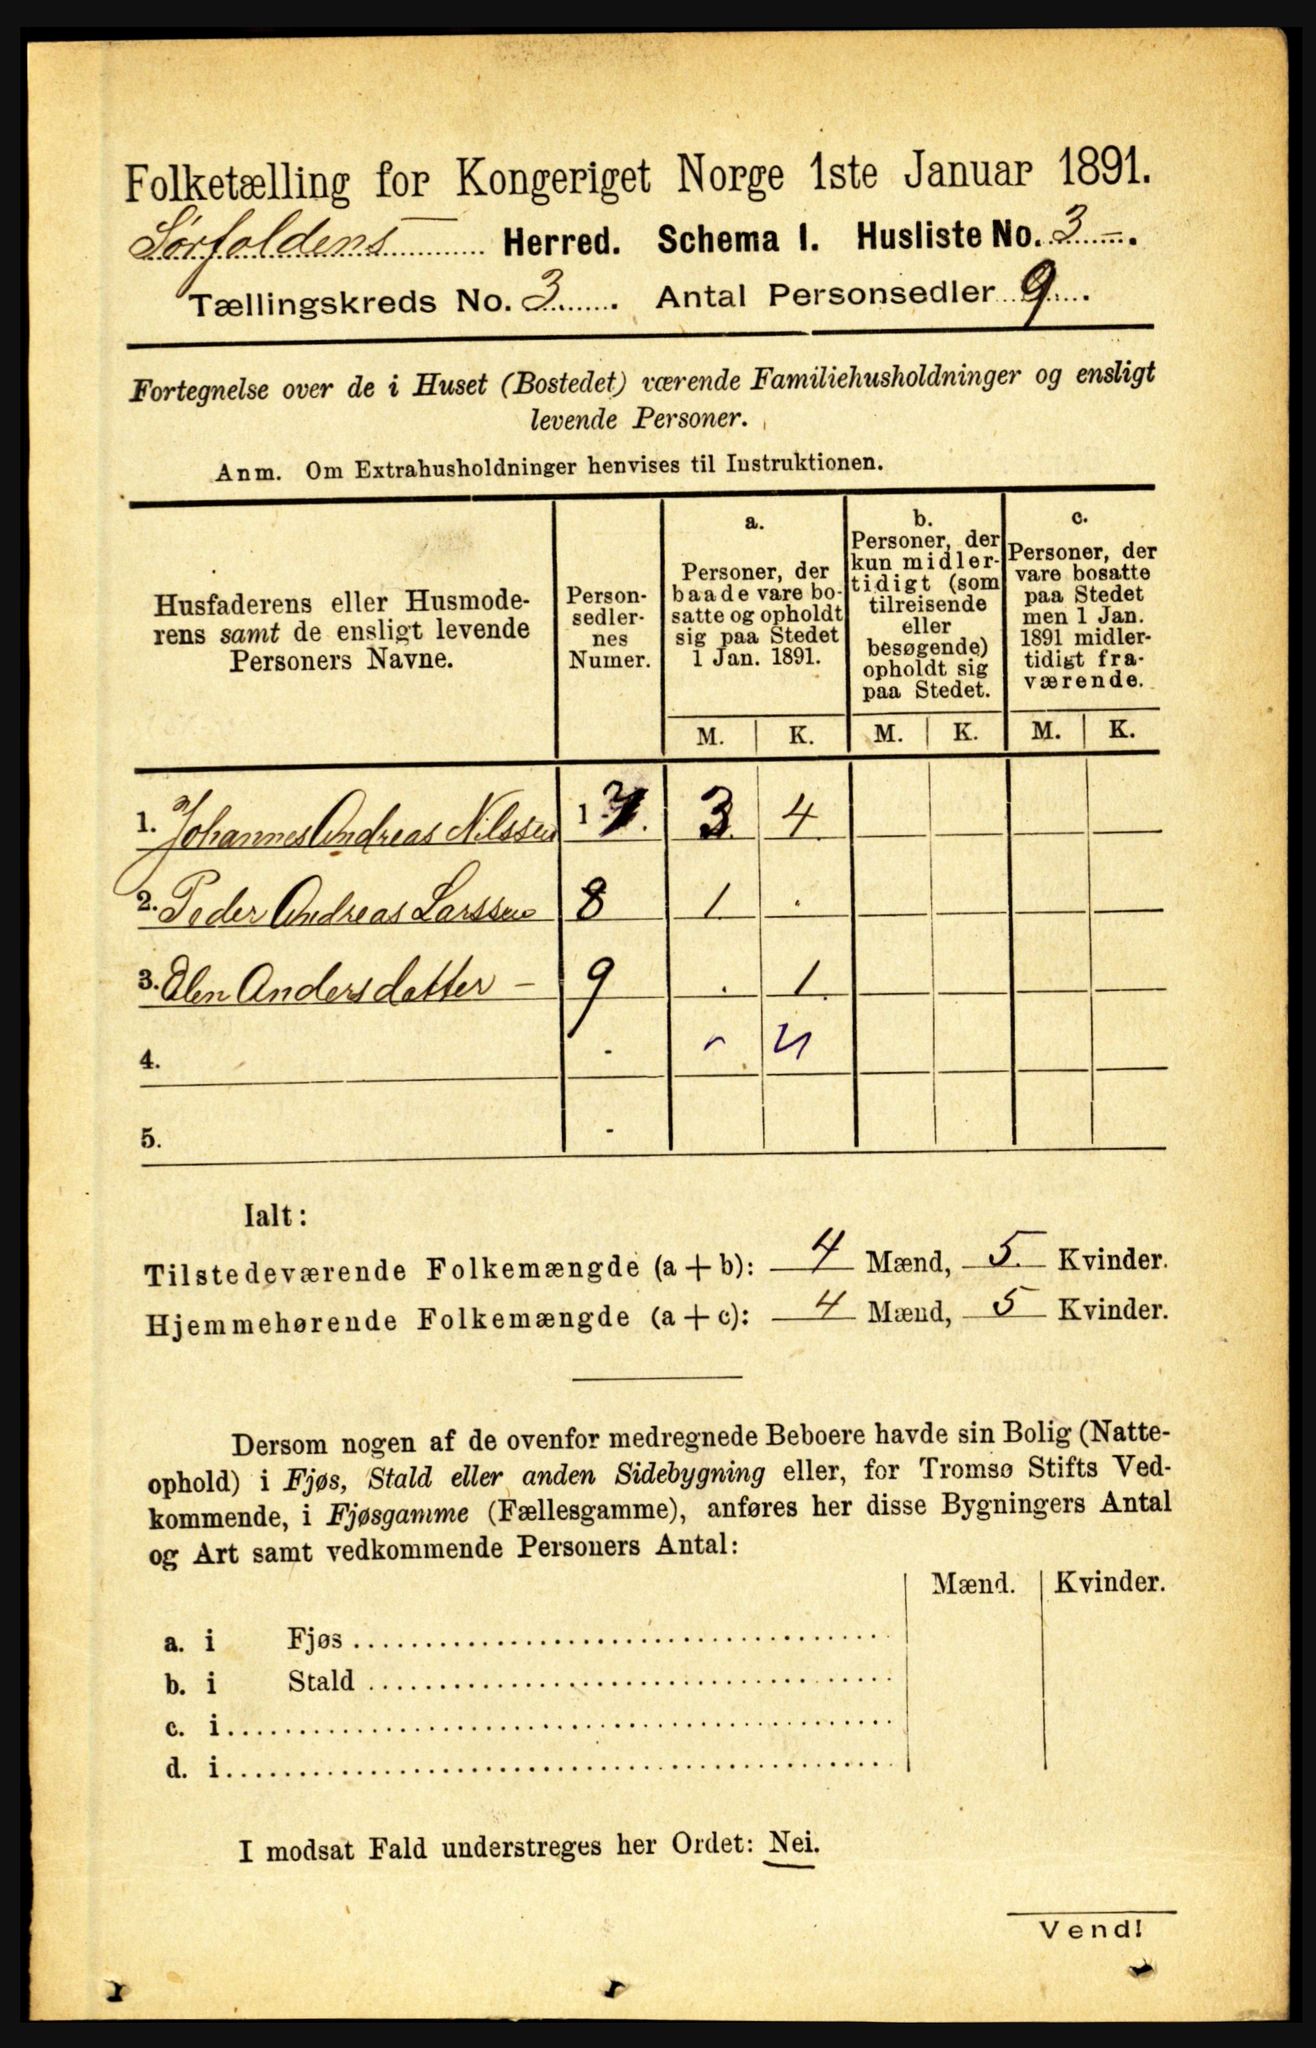 Folketælling for Kongeriget Norge 1ste Januar 1891.
Sørfoldens Herred. Schema I. Husliste No. 3 -.
Tællingskreds No. 3. Antal Personsedler 9.
Fortegnelse over de i Huset (Bostedet) værende Familiehusholdninger og ensligt
levende Personer.
Anm. Om Extrahusholdninger henvises til Instruktionen.
Husfaderens eller Husmode-
rens samt de ensligt levende
Personers Navne.
Person-
sedler-
nes
Numer.
a.
Personer, der
baade vare bo-
satte og opholdt
sig paa Stedet
1 Jan. 1891.
b.
Personer, der
kun midler-
tidigt (som
tilreisende
eller
besøgende)
opholdt sig
paa Stedet.
c.
Personer, der
vare bosatte
paa Stedet
men 1 Jan.
1891 midler-
tidigt fra-
værende.
M. K. M. K. M. K.
1. Johannes Andreas Nilssen 1-7. 3. 4.
2. Peder Andreas Larssen 8 1 .
3. Elen Andersdatter - 9 . 1.
4. -
5. -
Ialt:
Tilstedeværende Folkemængde (a+b): 4 Mænd, 5. Kvinder.
Hjemmehørende Folkemængde (a+c): 4 Mænd, 5 Kvinder.
Dersom nogen af de ovenfor medregnede Beboere havde sin Bolig (Natte-
ophold) i Fjøs, Stald eller anden Sidebygning eller, for Tromsø Stifts Ved-
kommende, i Fjøsgamme (Fællesgamme), anføres her disse Bygningers Antal
og Art samt vedkommende Personers Antal:
Mænd. Kvinder.
a. i Fjøs
b. i Stald
c. i
d. i
I modsat Fald understreges her Ordet: Nei.
Vend!